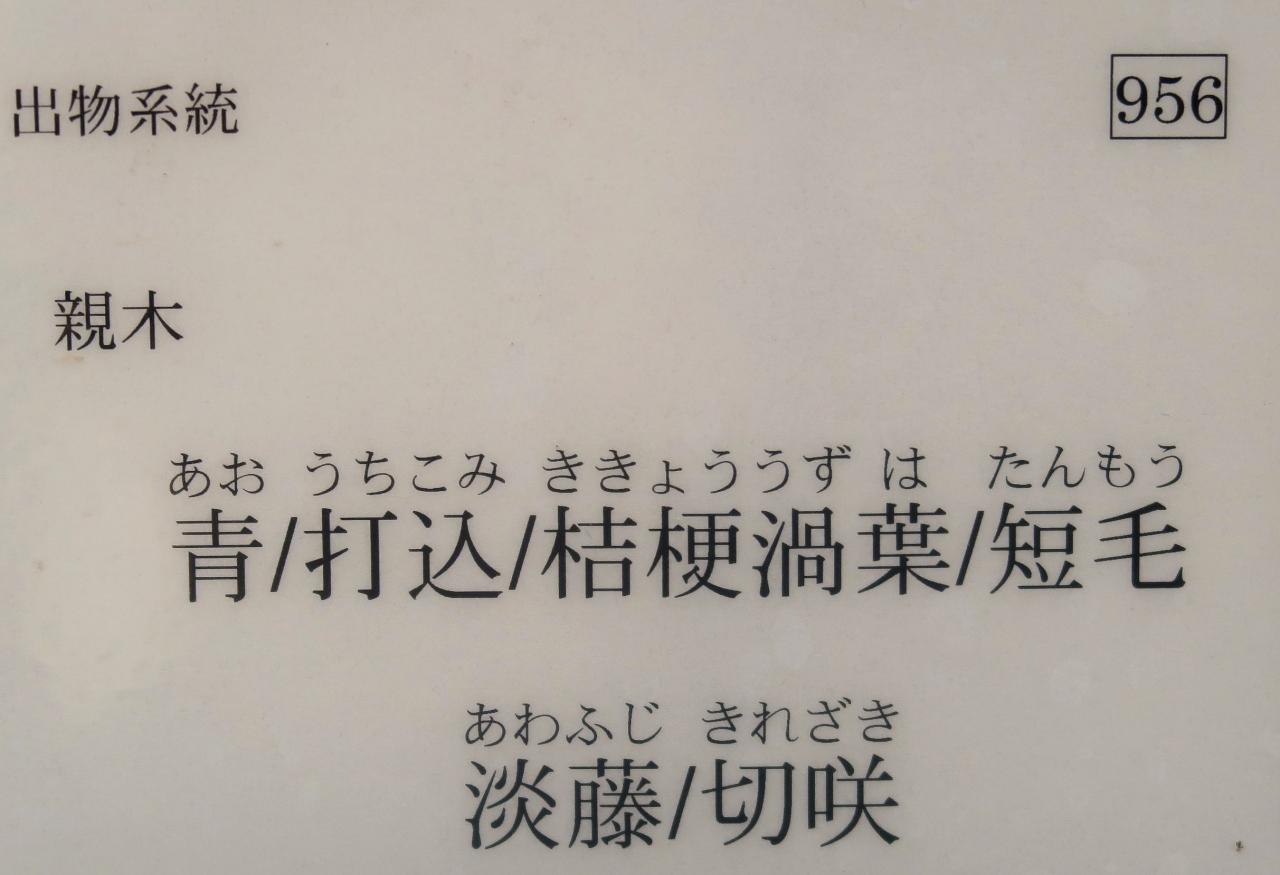 出物系統 956
親木
あお うちこみ ききょううず は たんもう
青/打込/桔梗渦葉/短毛
あわふじ きれざき
淡藤/切咲